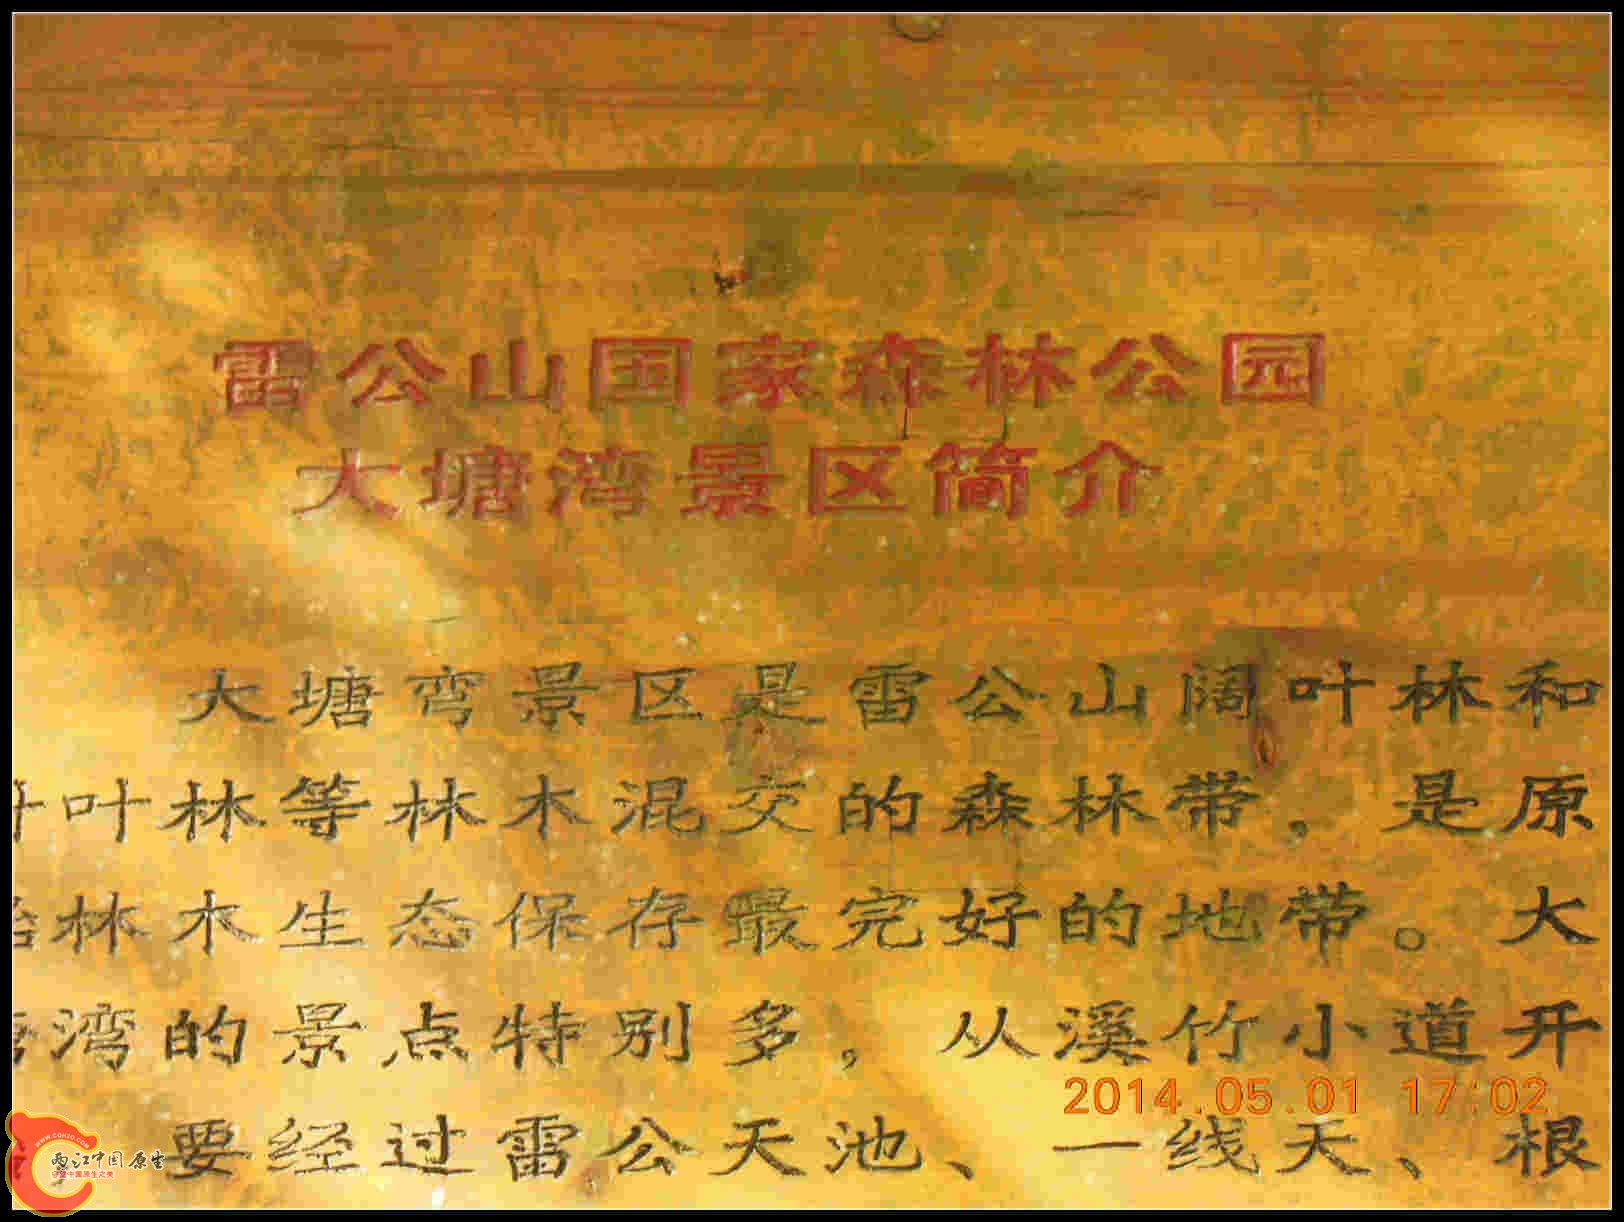 雷公山国家森林公园
大塘湾景区简介
大塘弯景区是雷公山阔叶林和
叶林等林木混交的森林带。是原
林木生态保存最完好的地带。大
湾的景点特别多，从溪竹小道开
2014.05.01 17:02
要经过雷公天池、一线天、根
WWW.CQHZQ.COM
两江中国原生